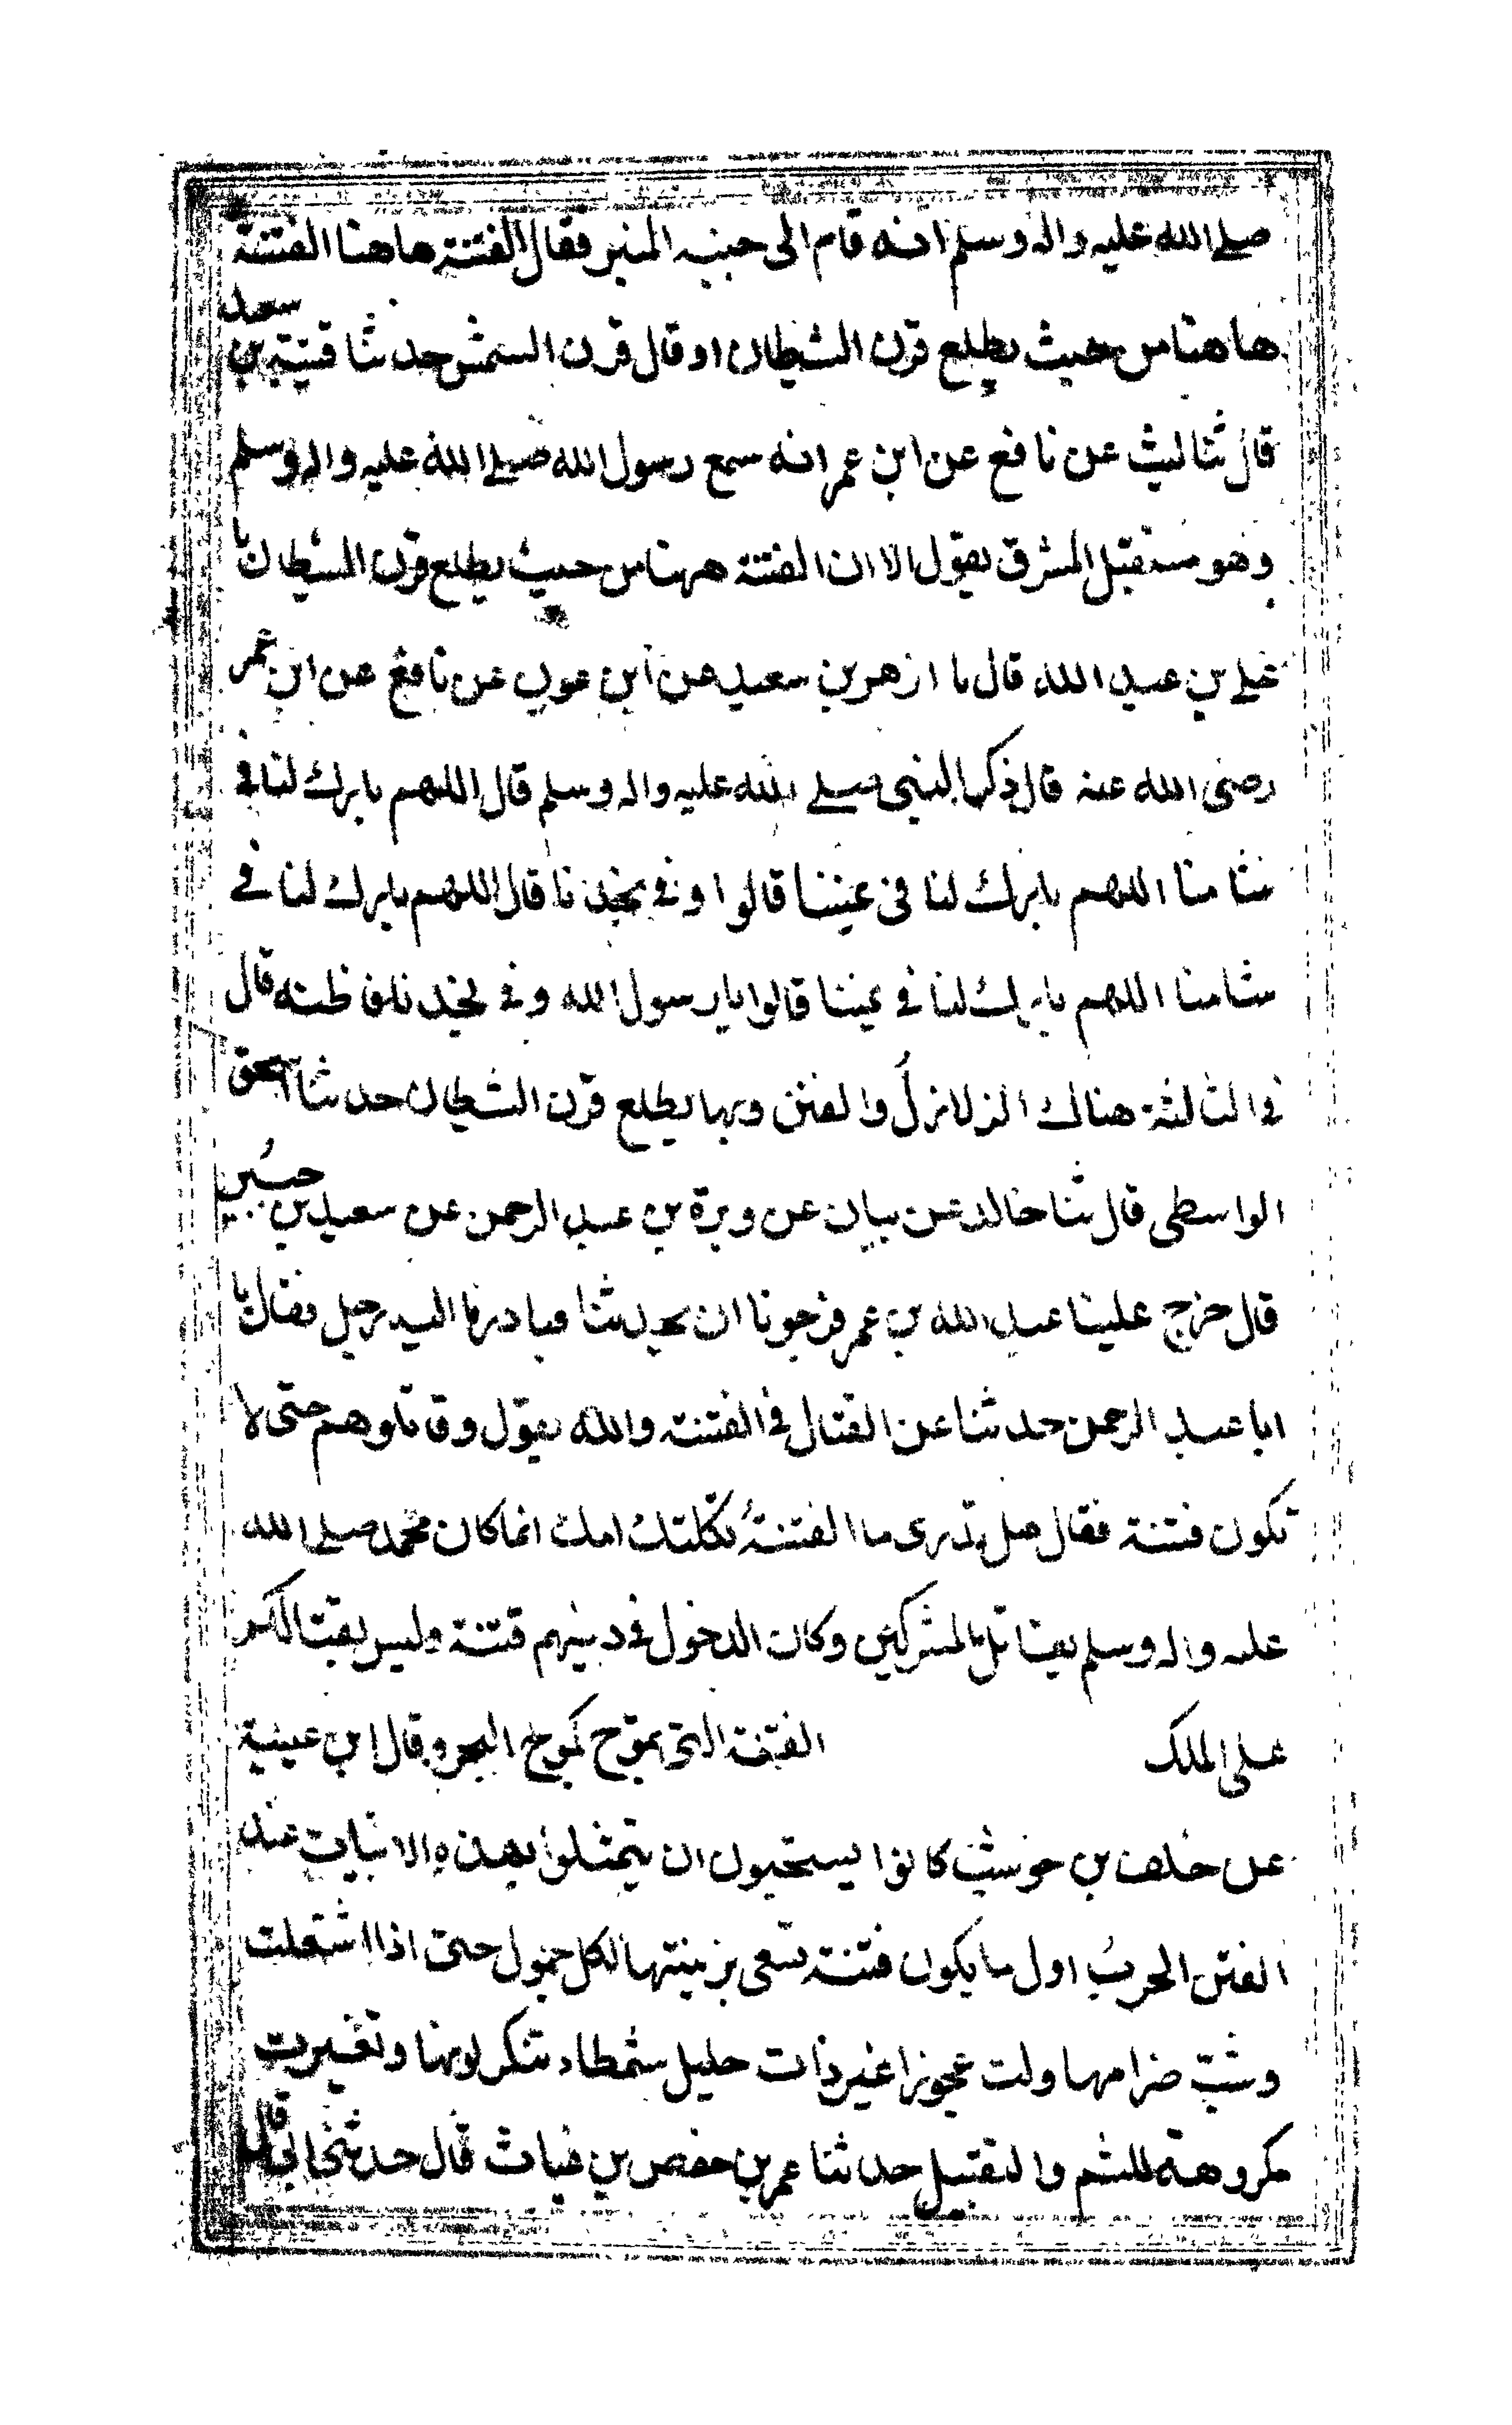 صلے الله عليه واله وسلم انه قام الى جنبه المنبر فقال الفتنة هاهنا الفتنة
هاهنا من حيث يطلع قرن الشيطان او قال قرن الشمس حدثنا قتيبة بن سعيد
قال ثنا ليث عن نافع عن ابن عمر انه سمع رسول الله صلے الله عليه واله وسلم
وهو مستقبل المشرق يقول الا ان الفتنة ههنا من حيث يطلع قرن الشيطان نا
علے بن عبد الله قال نا ازهر بن سعيد عن ابن عون عن نافع عن ابن عمر
رضى الله عنه قال ذكر النبى صلے الله عليه واله وسلم قال اللهم بارك لنا فے
شامنا اللهم بارك لنا فى يمننا قالوا وفے نجدنا قال اللهم بارك لنا فے
شامنا اللهم بارك لنا فے يمننا قالوا يا رسول الله وفے نجدنا فاظنه قال
فے الثالثة هناك الزلازل والفتن وبها يطلع قرن الشيطان حدثنا اسحق
الواسطى قال ثنا خالد عن بيان عن وبرة بن عبد الرحمن عن سعيد بن حسين
قال خرج علينا عبد الله بن عمر فرجونا ان يحدثنا فبادرنا اليه رجل فقال يا
ابا عبد الرحمن حدثنا عن القتال فے الفتنة والله يقول وقاتلوهم حتى لا
تكون فتنة فقال هل تدرى ما الفتنة ثكلتك امك انما كان محمد صلے الله
عليه واله وسلم يقاتل المشركين وكان الدخول فے دينهم فتنة وليس بقتالكم
على الملك الفتنة التى تموج كموج البحر وقال ابن عيينة
عن خلف بن حوشب كانوا يستحبون ان يتمثلوا بهذه الابيات عند
الفتن الحرب اول ما يكون فتنة تسعى بزينتها لكل جهول حتى اذا اشتعلت
وشب ضرامها ولت عجوزا غير ذات حليل شمطاء تنكر لونها وتغيرت
مكروهة للشم والتقبيل حدثنا عمر بن حفص بن غياث قال حدثنى ابى قال